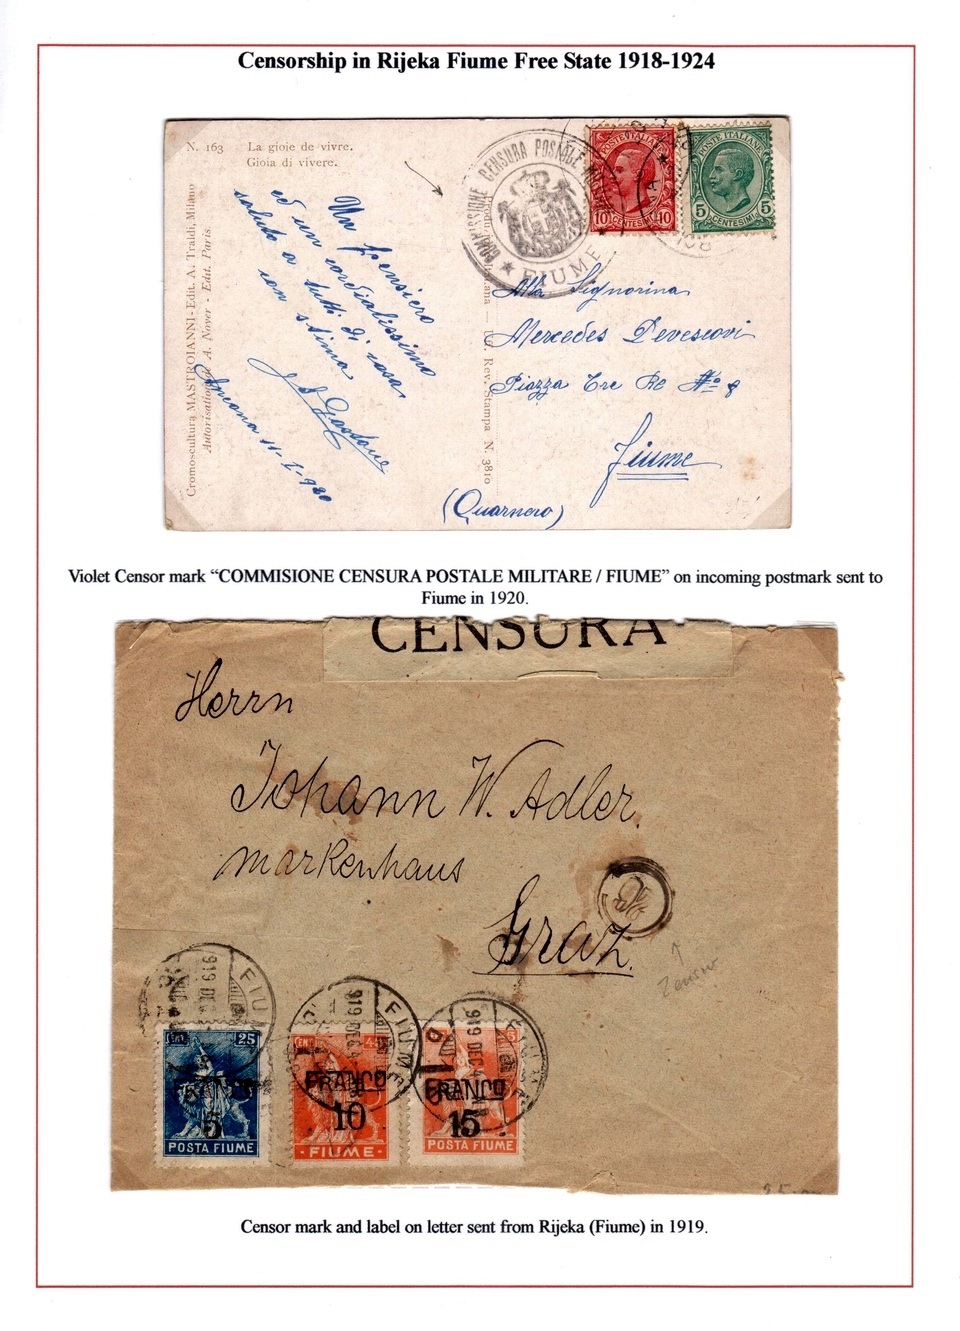 Censorship in Rijeka Fiume Free State 1918-1924
N. 163
La gioie de vivre.
Gioia di vivere.
Cromoscultura MASTROIANNI - Edit. A. Traldi, Milano
Autorisation de A. Noyer - Edit. Paris.
Un pensiero
ed un cordialissimo
saluto a tutti di casa
con stima
Gastone
Ancona 11-1-920
Rev. Stampa N. 3810
COMMISSIONE CENSURA POSTALE
FIUME
POSTE ITALIANE
10 CENTESIMI 10
POSTE ITALIANE
5 CENTESIMI 5
Alla Signorina
Mercedes Devescovi
Piazza Tre Re No 8
Fiume
(Quarnero)
Violet Censor mark “COMMISIONE CENSURA POSTALE MILITARE / FIUME” on incoming postmark sent to
Fiume in 1920.
CENSURA
Herrn
Johann W. Adler.
Markenhaus
Graz.
Zensur
FIU
919 DEC
FIUME
919 DEC
919 DEC
25
5
POSTA FIUME
FRANCO
10
FIUME
FRANCO
15
POSTA FIUME
Censor mark and label on letter sent from Rijeka (Fiume) in 1919.